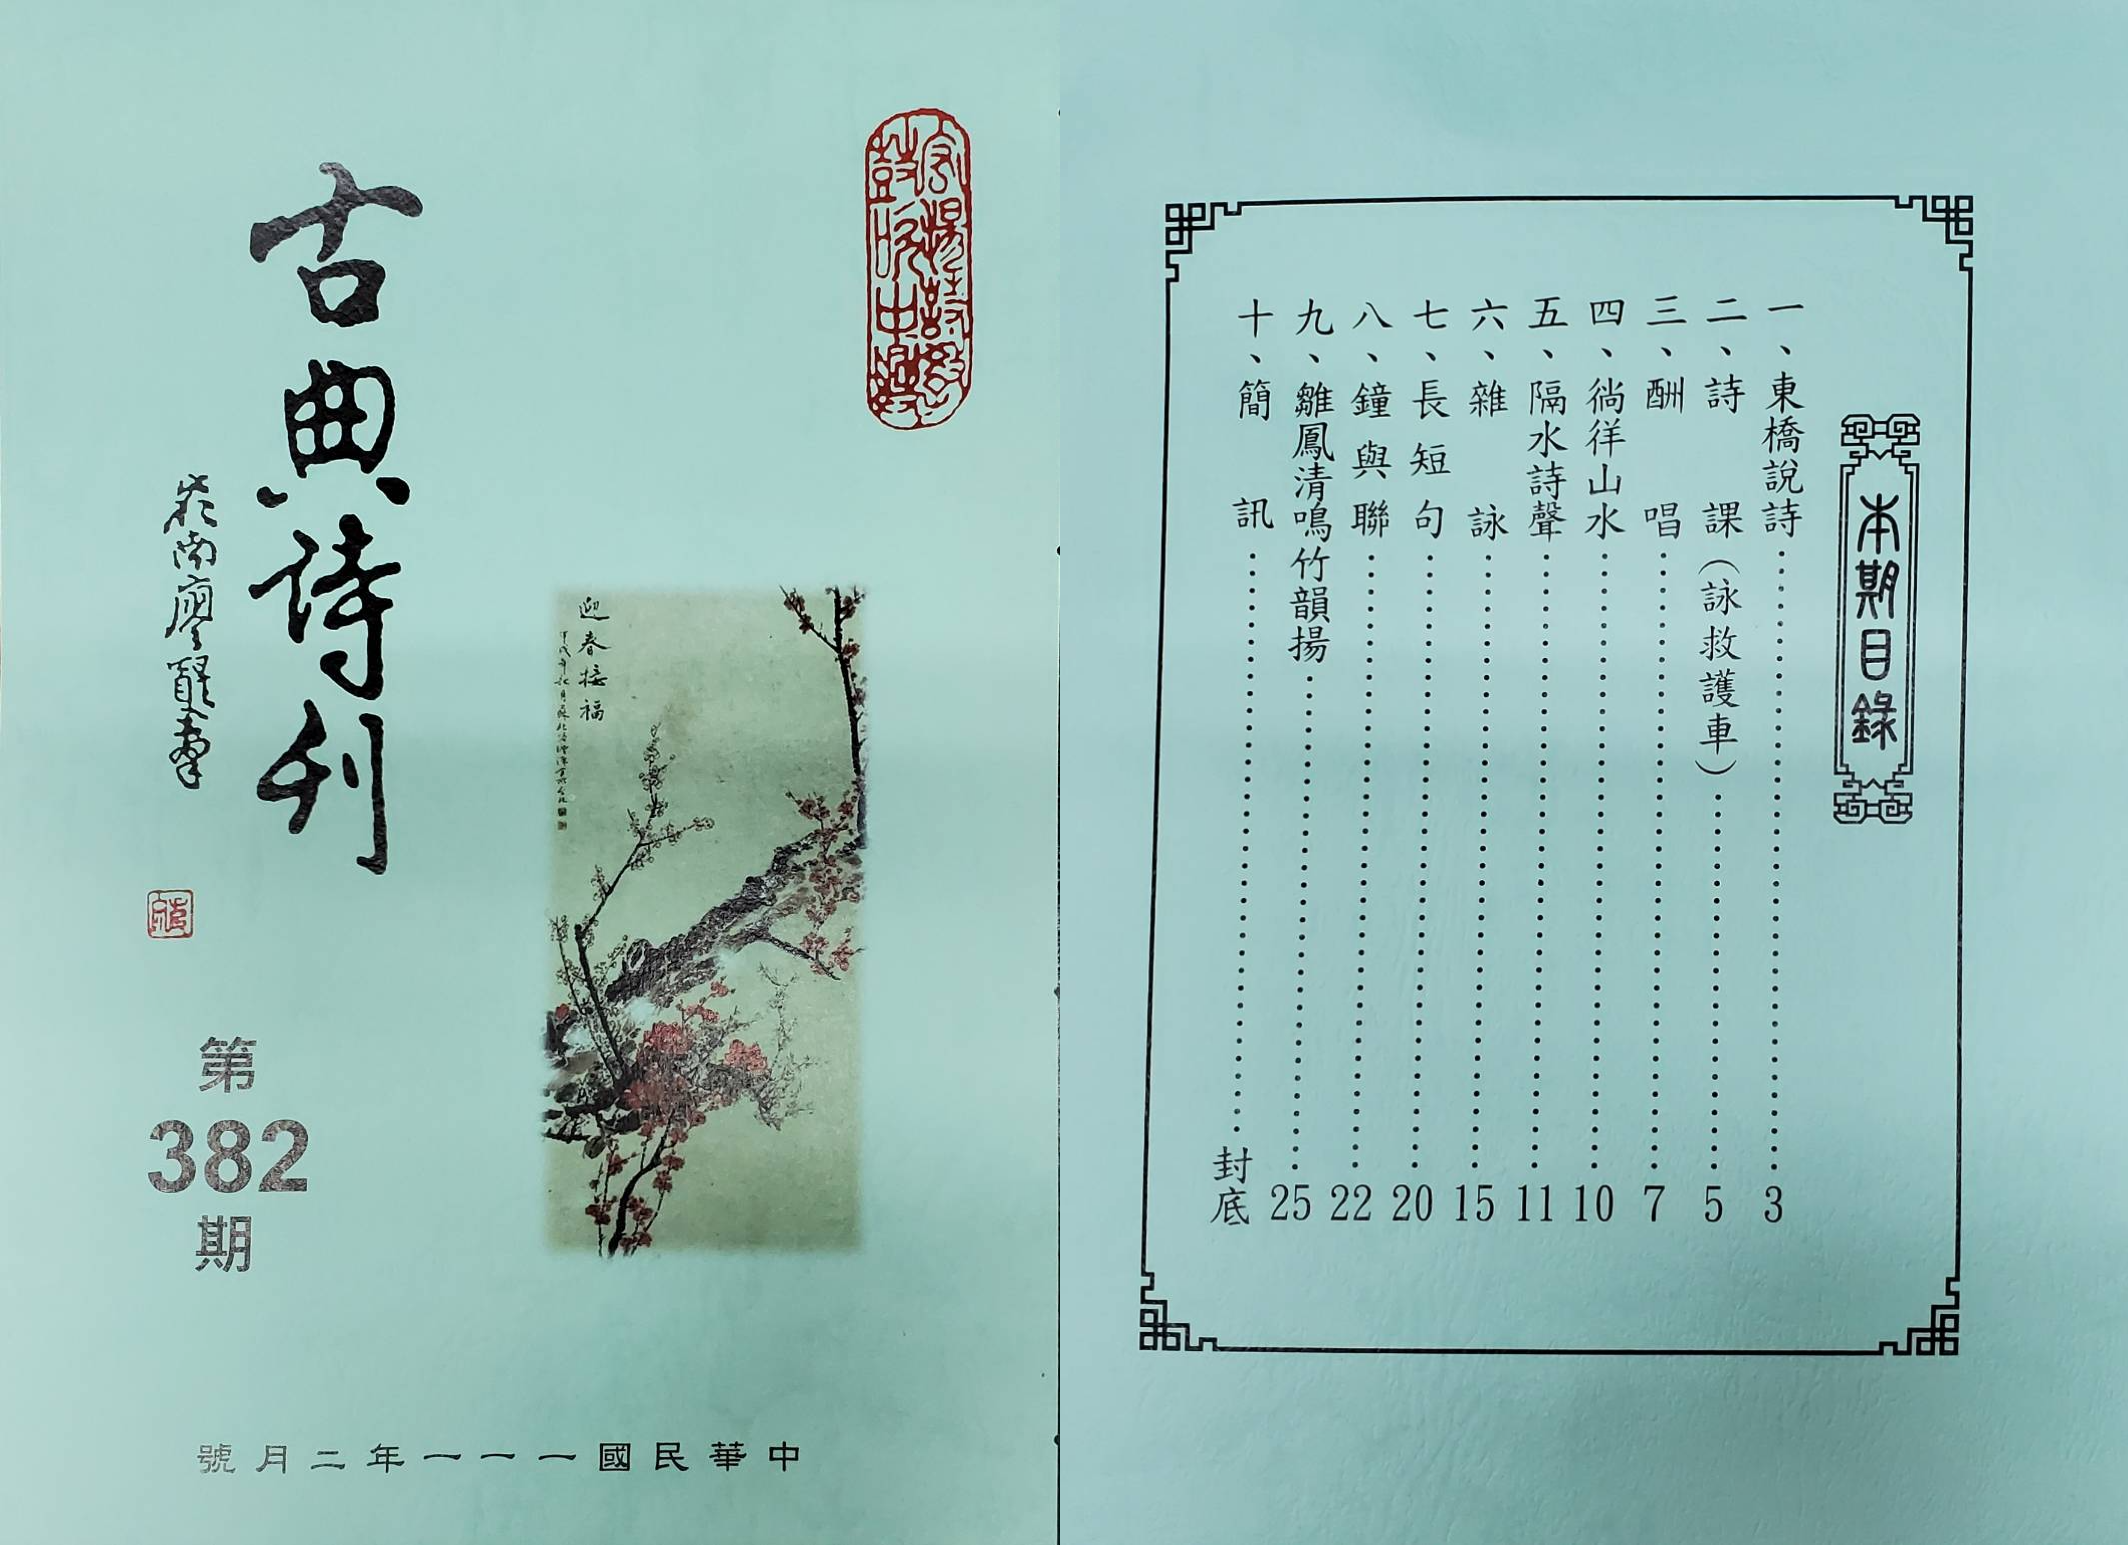 古典詩刊
第
382
期
迎春接福
中華民國一一一年二月號
本期目錄
一、東橋說詩⋯⋯3
二、詩課（詠救護車）⋯⋯5
三、酬唱⋯⋯7
四、徜徉山水⋯⋯10
五、隔水詩聲⋯⋯11
六、雜詠⋯⋯15
七、長短句⋯⋯20
八、鐘與聯⋯⋯22
九、雛鳳清鳴竹韻揚⋯⋯25
十、簡訊⋯⋯封底